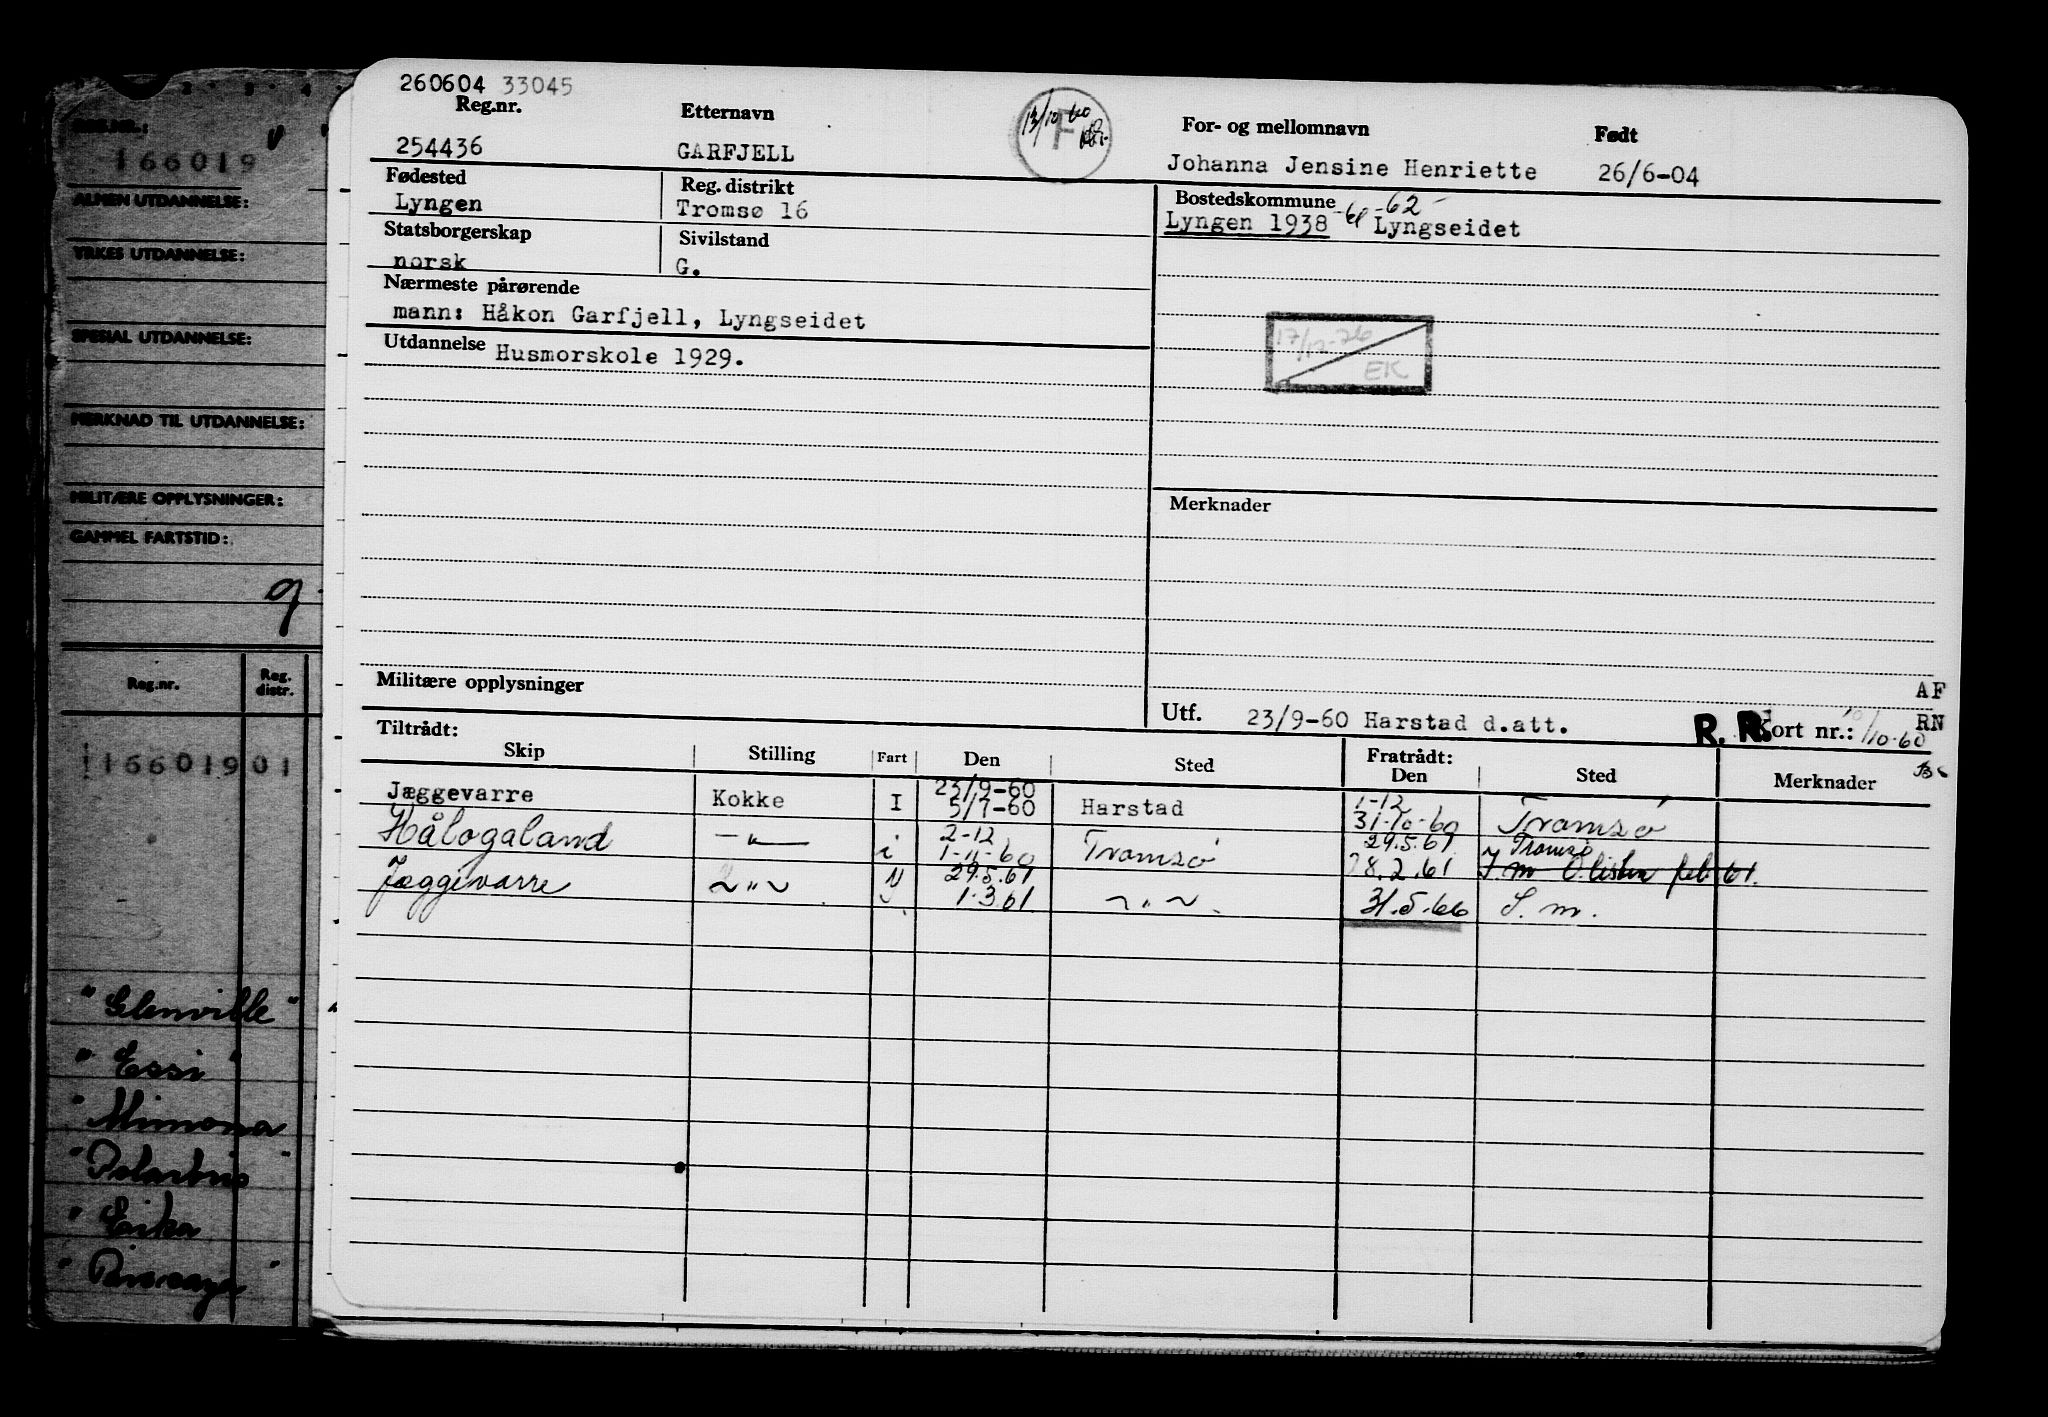 260604 33045
Reg.nr. Etternavn For- og mellomnavn Født
13/10 60
F
254436 GARFJELL Johanna Jensine Henriette 26/6-04
Fødested Reg. distrikt Bostedskommune
Lyngen Tromsø 16 Lyngen 1938 -61 -62 Lyngseidet
Statsborgerskap Sivilstand
norsk G.
Nærmeste pårørende
mann: Håkon Garfjell, Lyngseidet
17/12-76
EK
Utdannelse Husmorskole 1929.
Merknader
Militære opplysninger
AF
Utf. 23/9-60 Harstad d.att. R.R. Kort nr.: 10/10-60 RN
Tiltrådt: Fratrådt:
Skip Stilling Fart Den Sted Den Sted Merknader
Jæggevarre Kokke I 23/9-60 5/7-60 Harstad 1-12 31-10-60 Tromsø
Hålogaland —"— i 2-12 1-11-60 Tromsø 29.5.61 28.2.61 Tromsø
Jæggevarre ~"~ 29.5.61 1.3.61 ~"~ 31.5.66 S.m.
REG.NR.:
166019
ALMEN UTDANNELSE:
YRKES UTDANNELSE:
SPESIAL UTDANNELSE:
MERKNAD TIL UTDANNELSE:
MILITÆRE OPPLYSNINGER:
GAMMEL FARTSTID:
Reg.nr. Reg. distr.
116601901
"Glenville"
"Essi"
"Mimona
"Erika